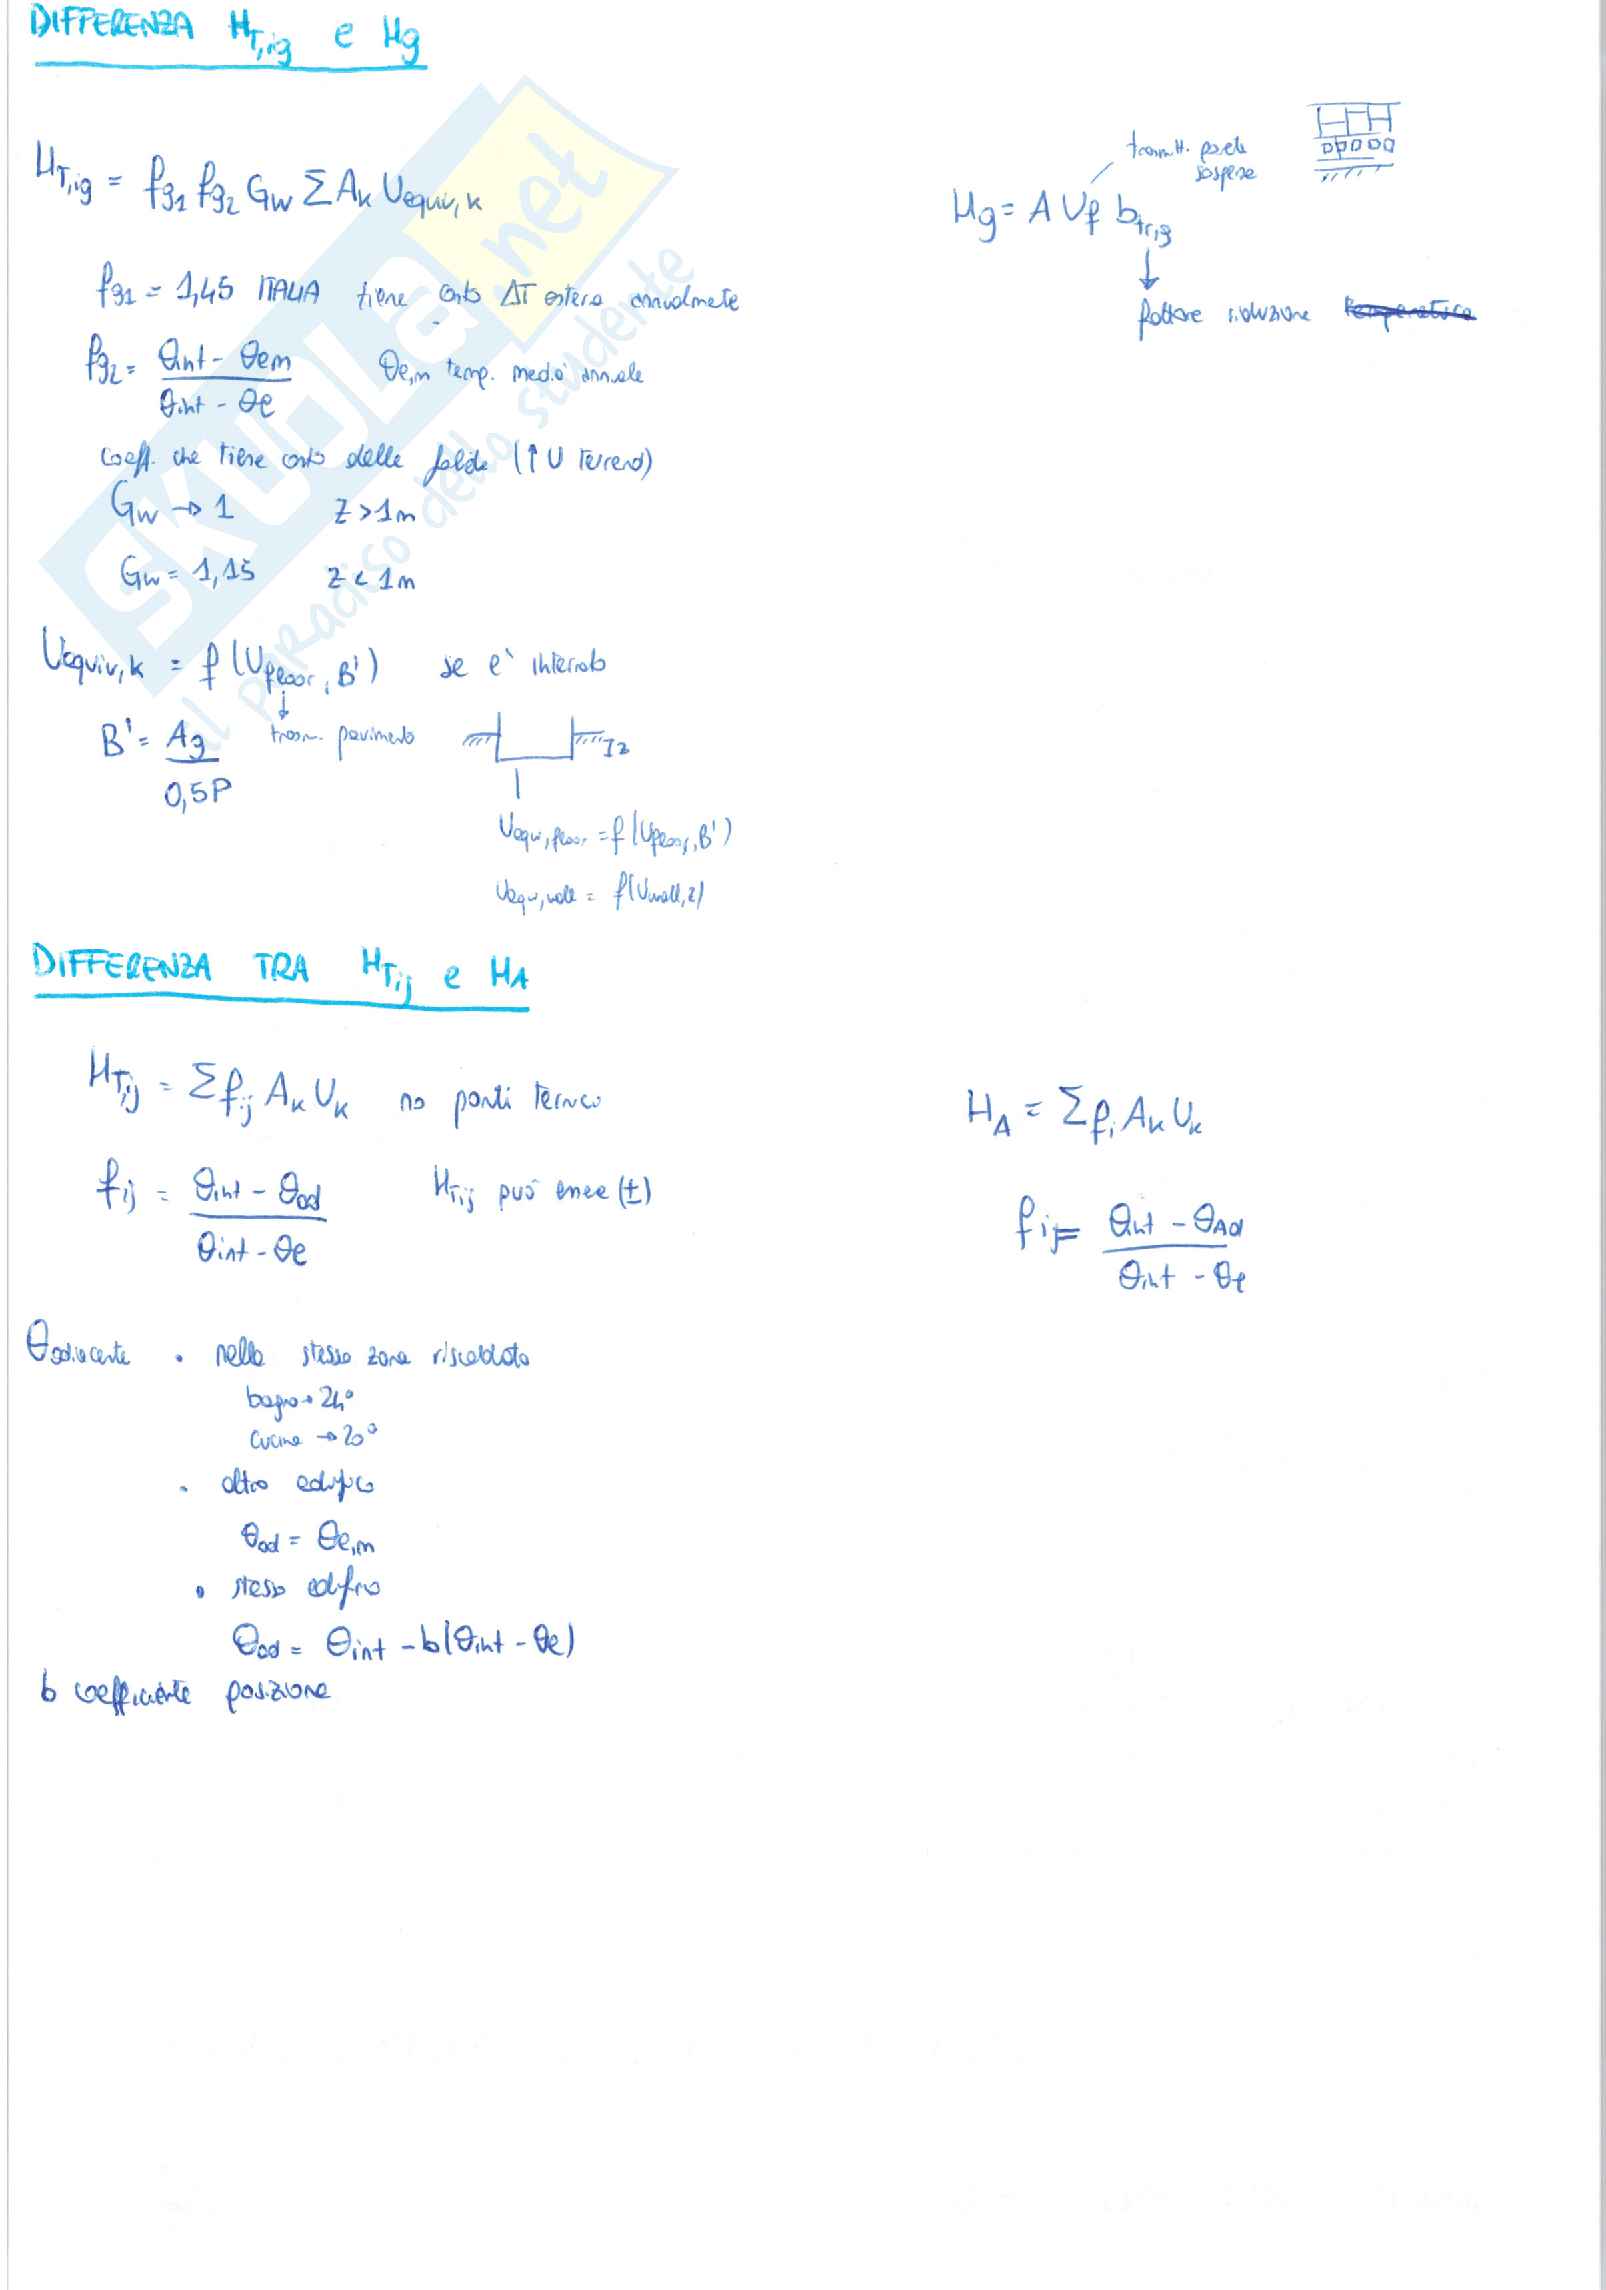 DIFFERENZA H_T,ig e Hg
H_T,ig = f_g1 f_g2 G_w Σ A_k U_equiv,k
f_g1 = 1,45 ITALIA tiene conto ΔT esterna annualmente
f_g2 = (θint - θem) / (θint - θe) θe,m temp. media annuale
coeff. che tiene conto delle falde (↑ U terreno)
G_w → 1 z > 1m
G_w = 1,15 z < 1m
U_equiv,k = f (U_floor, B') se e' interrato
B' = Ag / 0,5P
trasm. pavimento
z
U_equiv,floor = f (U_floor, B')
U_equiv,wall = f (U_wall, z)
trasmitt. parete
sospesa
Hg = A Uf b_tr,g
fattore riduzione temperatura
DIFFERENZA TRA H_T,ij e H_A
H_T,ij = Σ f_ij A_k U_k no ponti termici
f_ij = (θint - θad) / (θint - θe) H_T,ij può essere (±)
H_A = Σ f_i A_k U_k
f_ij = (θint - θAd) / (θint - θe)
θadiacente • nella stessa zona riscaldata
bagno → 24°
cucina → 20°
• altro edificio
θad = θe,m
• stesso edificio
θad = θint - b (θint - θe)
b coefficiente posizione
SKUOLA.net
al paradiso dello studente